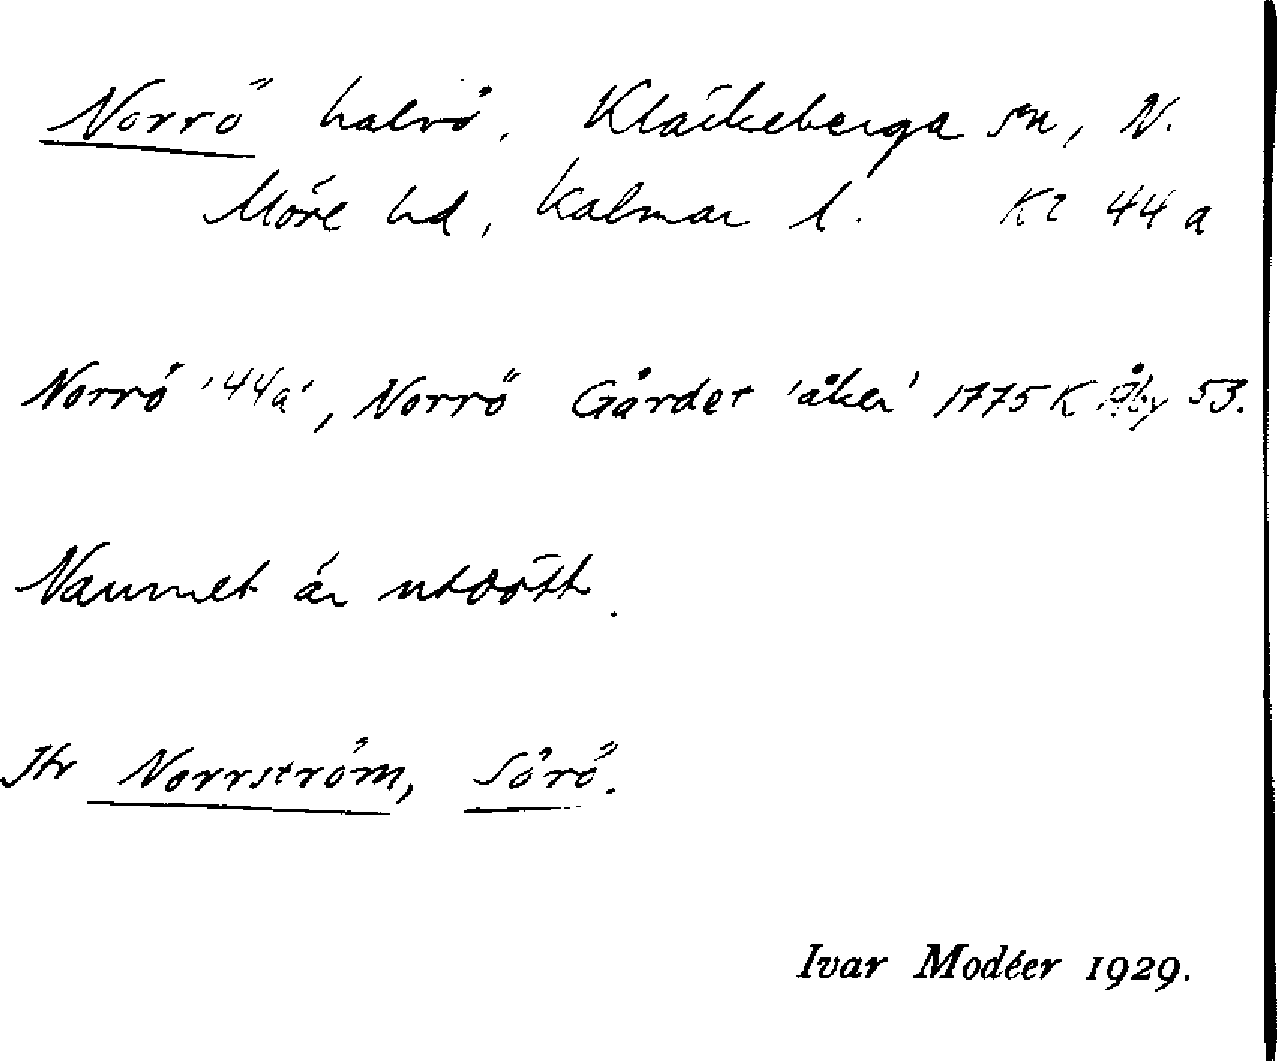 Norrö halvö, Kläckeberga sn, N.
Möre hd, Kalmar l. Kl 44 a
Norrö '44a', Norrö Gärdet 'åker' 1775 K Åby 53.
Namnet är utdött.
Jfr Norrström, Sörö.
Ivar Modéer 1929.